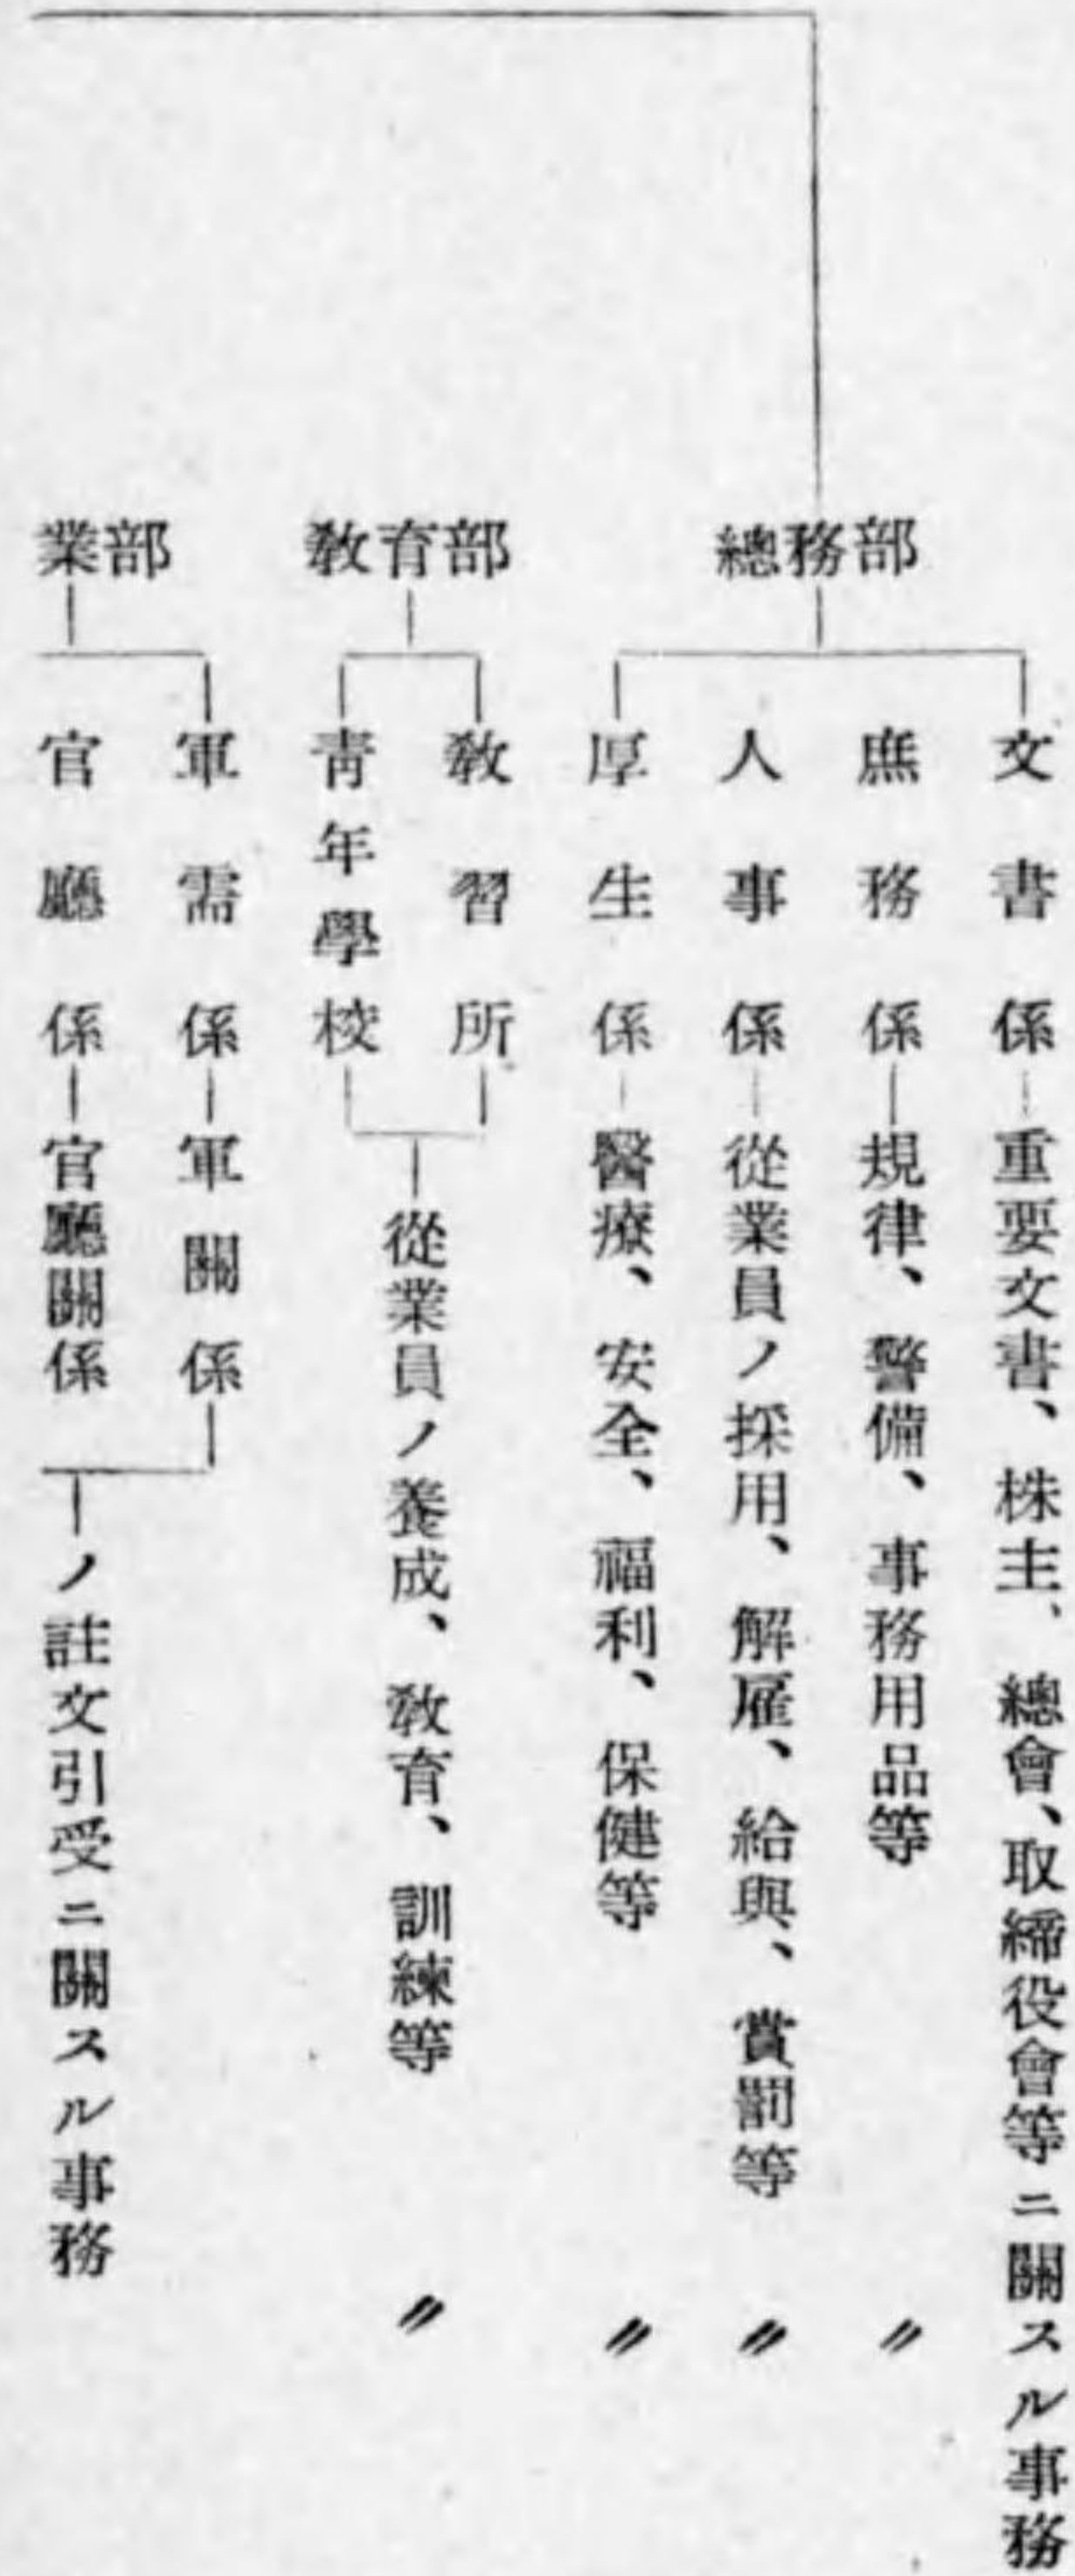 總務部
文書係
重要文書、株主、總會、取締役會等ニ關スル事務
庶務係
規律、警備、事務用品等 〃
人事係
從業員ノ採用、解雇、給與、賞罰等 〃
厚生係
醫療、安全、福利、保健等 〃
敎育部
敎習所
靑年學校
從業員ノ養成、敎育、訓練等 〃
業部
軍需係
軍關係
官廳係
官廳關係
ノ註文引受ニ關スル事務